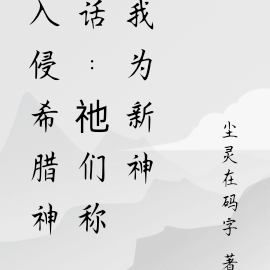 入侵希腊神
话：祂们称
我为新神
尘灵在码字 著